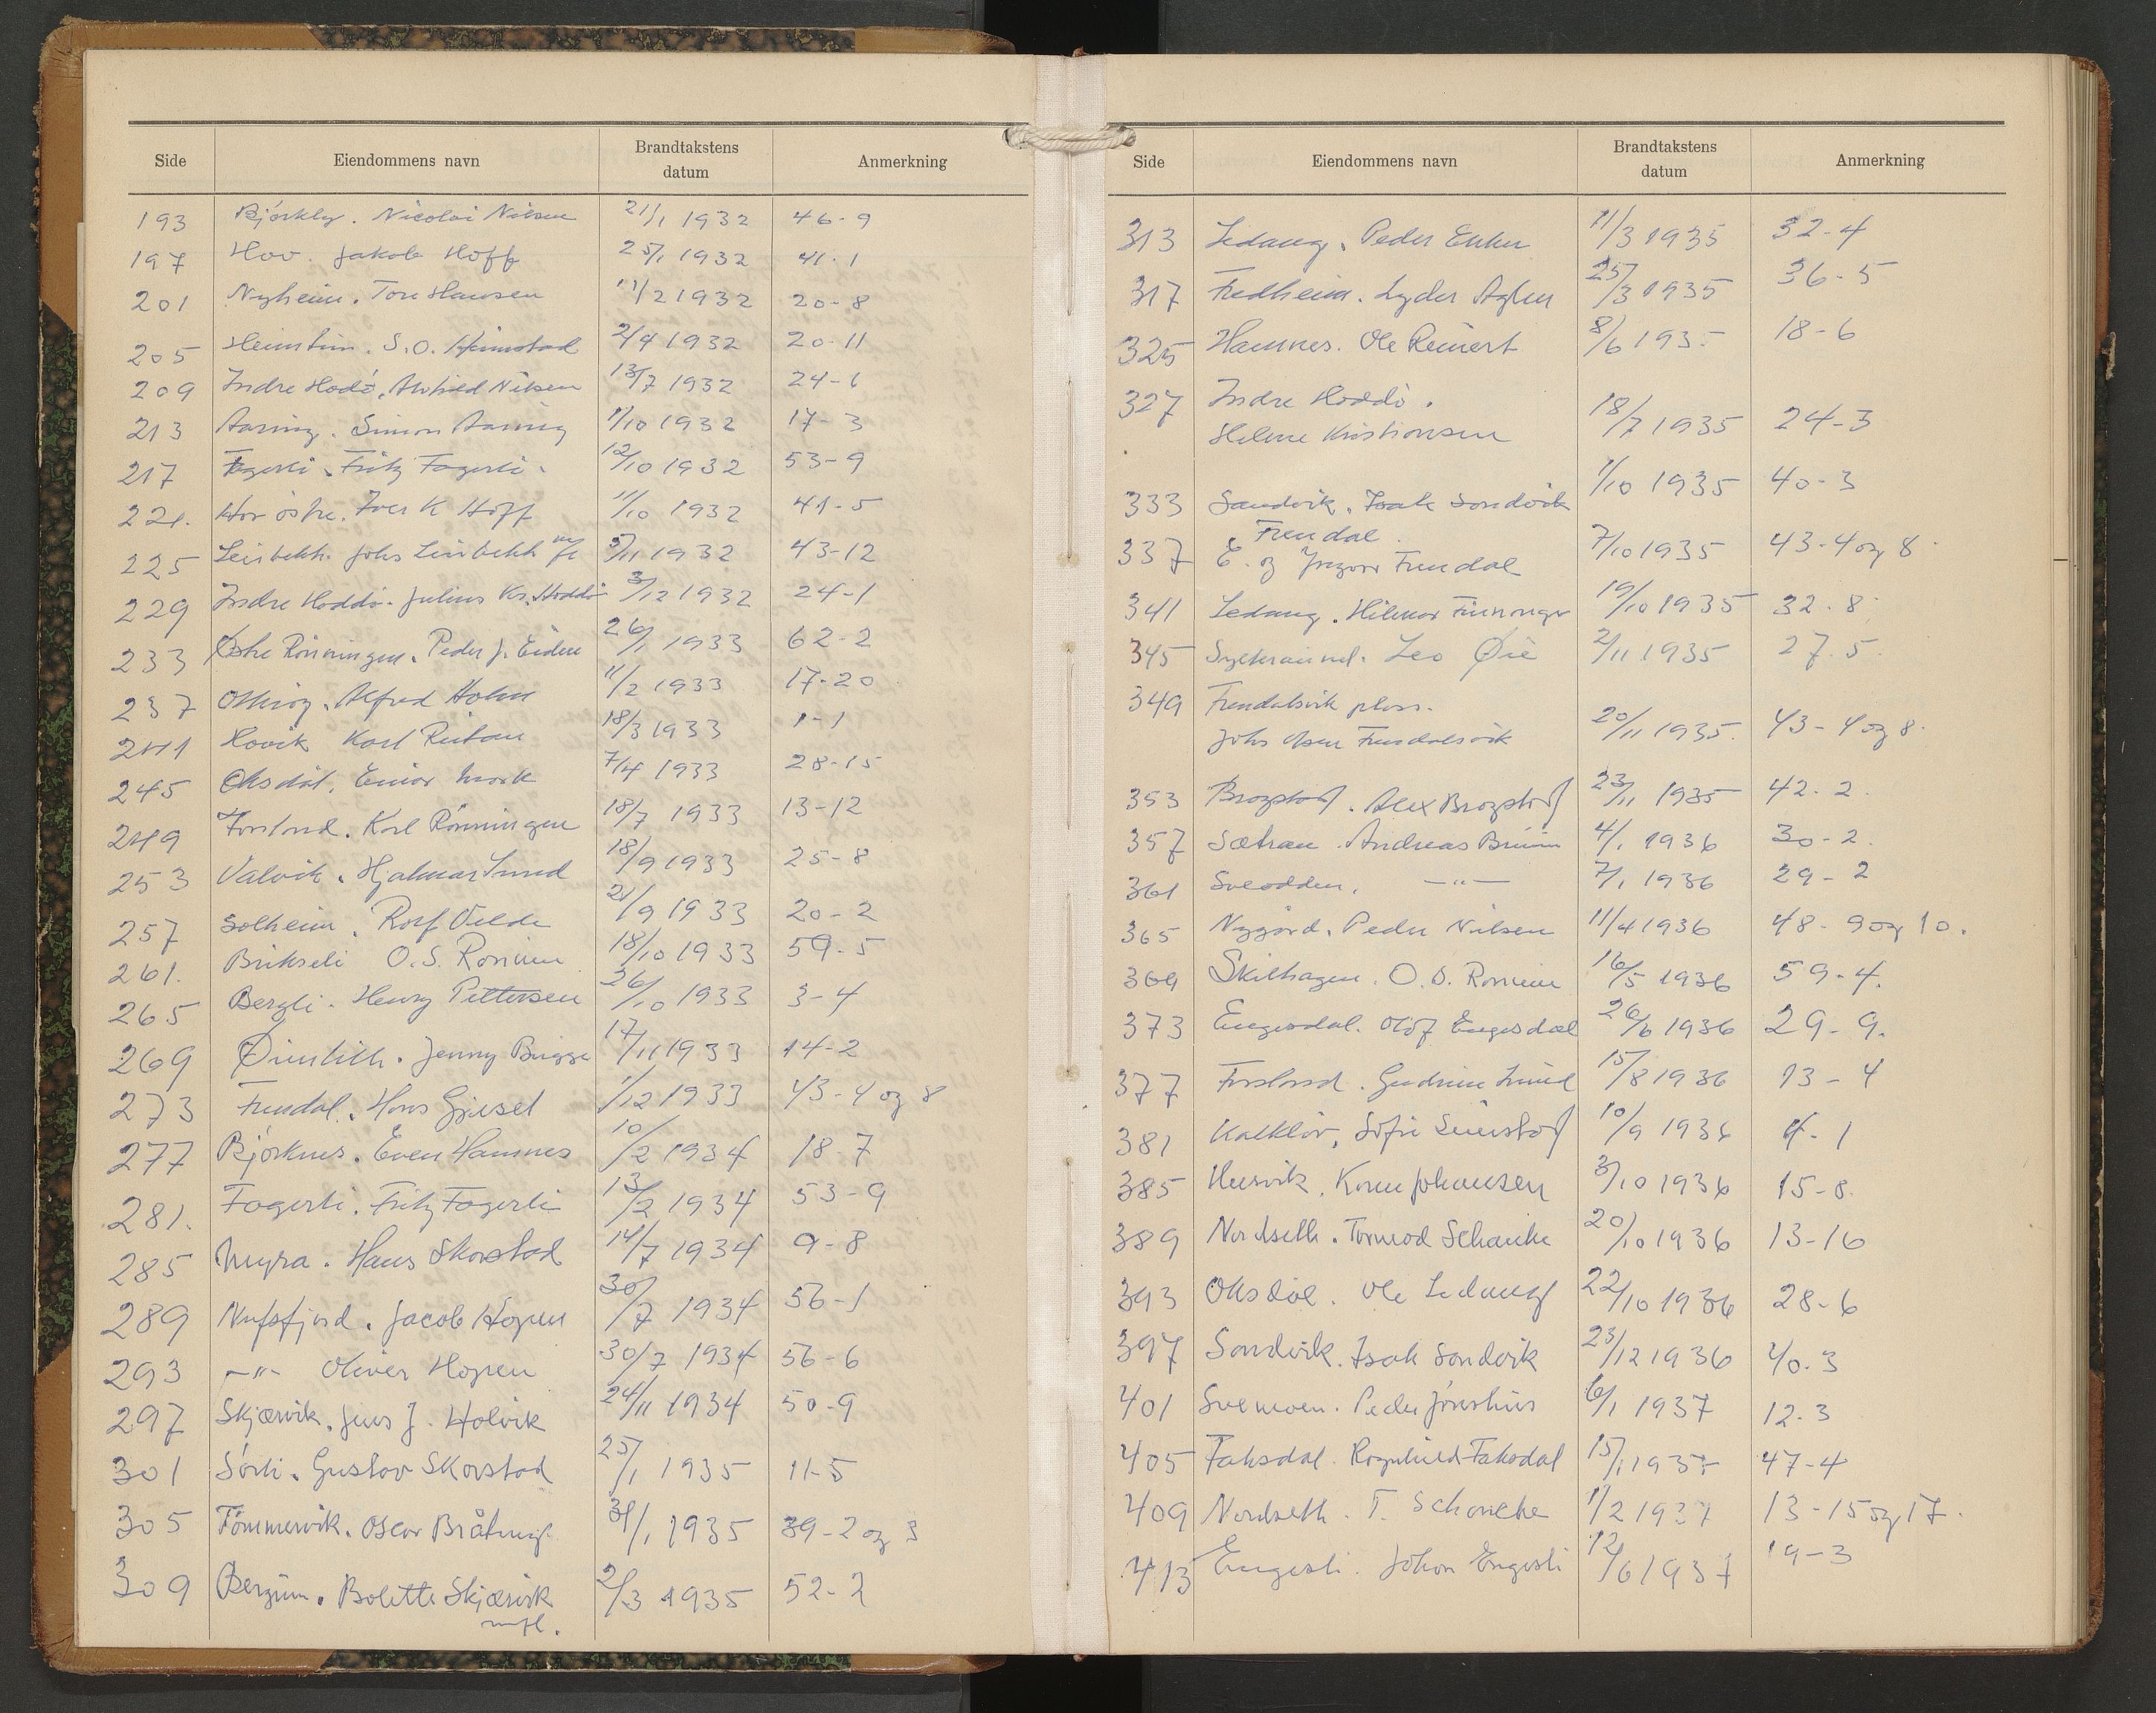 Side Eiendommens navn Brandtakstens datum Anmerkning
193 Björkly. Nicolai Nilsen 21/1 1932 46-9
197 Hov. Jakob Hoff 25/1 1932 41-1
201 Nyheim. Tore Hansen 11/2 1932 20-8
205 Heimtun. S.O. Heimstad 2/4 1932 20-11
209 Indre Hodö. Nilsen 13/7 1932 24-6
213 Aaring. Simon Aaring 1/10 1932 17-3
217 Fagerli. Fritz Fagerli. 12/10 1932 53-9
221. Hov östre. Iver K Hoff 11/10 1932 41-5
225 Leirbekk. Johs Leirbekk m/fl 5/11 1932 43-12
229 Indre Hoddö. Julius Kr. Hoddö 3/12 1932 24-1
233 Østre Rönningen. Peder J. Eidene 26/1 1933 62-2
237 Otting. Alfred Holm 11/2 1933 17-20
241 Hovik Karl Reitan 18/3 1933 1-1
245 Oksdal. Einar Mork 7/4 1933 28-15
249 Forsland. Karl Rönningen 18/7 1933 13-12
253 Valvik. Hjalmar Lund 18/9 1933 25-8
257 Solheim. Rolf Velde 21/9 1933 20-2
261. Brikseli O.S. Rosinen 18/10 1933 59-5
265 Bergli. Henry Pettersen 26/10 1933 3-4
269 Jenny Brigge 17/11 1933 14-2
273 Finndal. Hans Gjesel 1/12 1933 43-4 og 8
277 Björknes. Even Hamnes 10/2 1934 18-7
281. Fagerli. Fritz Fagerli 13/2 1934 53-9
285 Myra. Hans Skorstad 14/7 1934 9-8
289 Nufsfjord. Jacob Hopen 30/7 1934 56-1
293 -"- Oliver Hopen 30/7 1934 56-6
297 Skjærvik. Jens J. Holvik 24/11 1934 50-9
301 Sörli. Gustav Skorstad 25/1 1935 11-5
305 Tömmervik. Oscar Bråteng 31/1 1935 39-2 og 3
309 Bergum. Bolette Skjærvik 2/3 1935 52-2
mfl.
Side Eiendommens navn Brandtakstens datum Anmerkning
313 Ledang. Peder 11/3 1935 32-4
317 Fredheim. Lyder Aglen 25/3 1935 36-5
325 Hamnes. Ole Reinert 8/6 1935 18-6
327 Indre Hoddö.
Helene Kristiansen 18/7 1935 24-3
333 Sandvik. Isak Sandvik 1/10 1935 40-3
Finndal.
337 E. og Ingvar Finndal 7/10 1935 43-4 og 8
341 Ledang. Hilmar 19/10 1935 32-8
345 Leo Øie 2/11 1935 27-5
349 Finndalsvik plass.
Johs Olsen Finndalsvik 20/11 1935 43-4 og 8
353 Brogstad. Alex Brogstad 23/11 1935 42-2
357 Sætran. Andreas Bruun 4/1 1936 30-2
361 Sveodden. -"- 7/1 1936 29-2
365 Nygård. Peder Nilsen 11/4 1936 48-9 og 10.
369 Skilhagen. O.S. Rosinen 16/5 1936 59-4.
373 Engesdal. Olof Engesdal 26/6 1936 29-9.
377 Forsland. Gudrun Lund 15/8 1936 13-4
381 Kalklöv, Sofie 10/9 1936 4-1
385 Husvik. Karen Johansen 3/10 1936 15-8
389 Nordseth. Tormod Schanke 20/10 1936 13-16
393 Oksdal. Ole Ledang 22/10 1936 28-6
397 Sandvik. Isak Sandvik 23/12 1936 40-3
401 Svenmoen. Peder Jörstius 6/1 1937 12-3
405 Faksdal. Ragnhild Faksdal 15/1 1937 47-4
409 Nordseth. T. Schancke 1/2 1937 13-15 og 17.
413 Engesli. Johan Engesli 12/6 1937 19-3